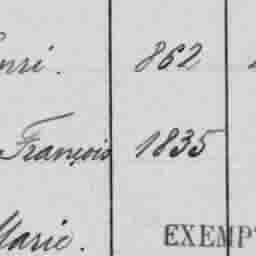 862
François 1835
Marie. EXEMPT